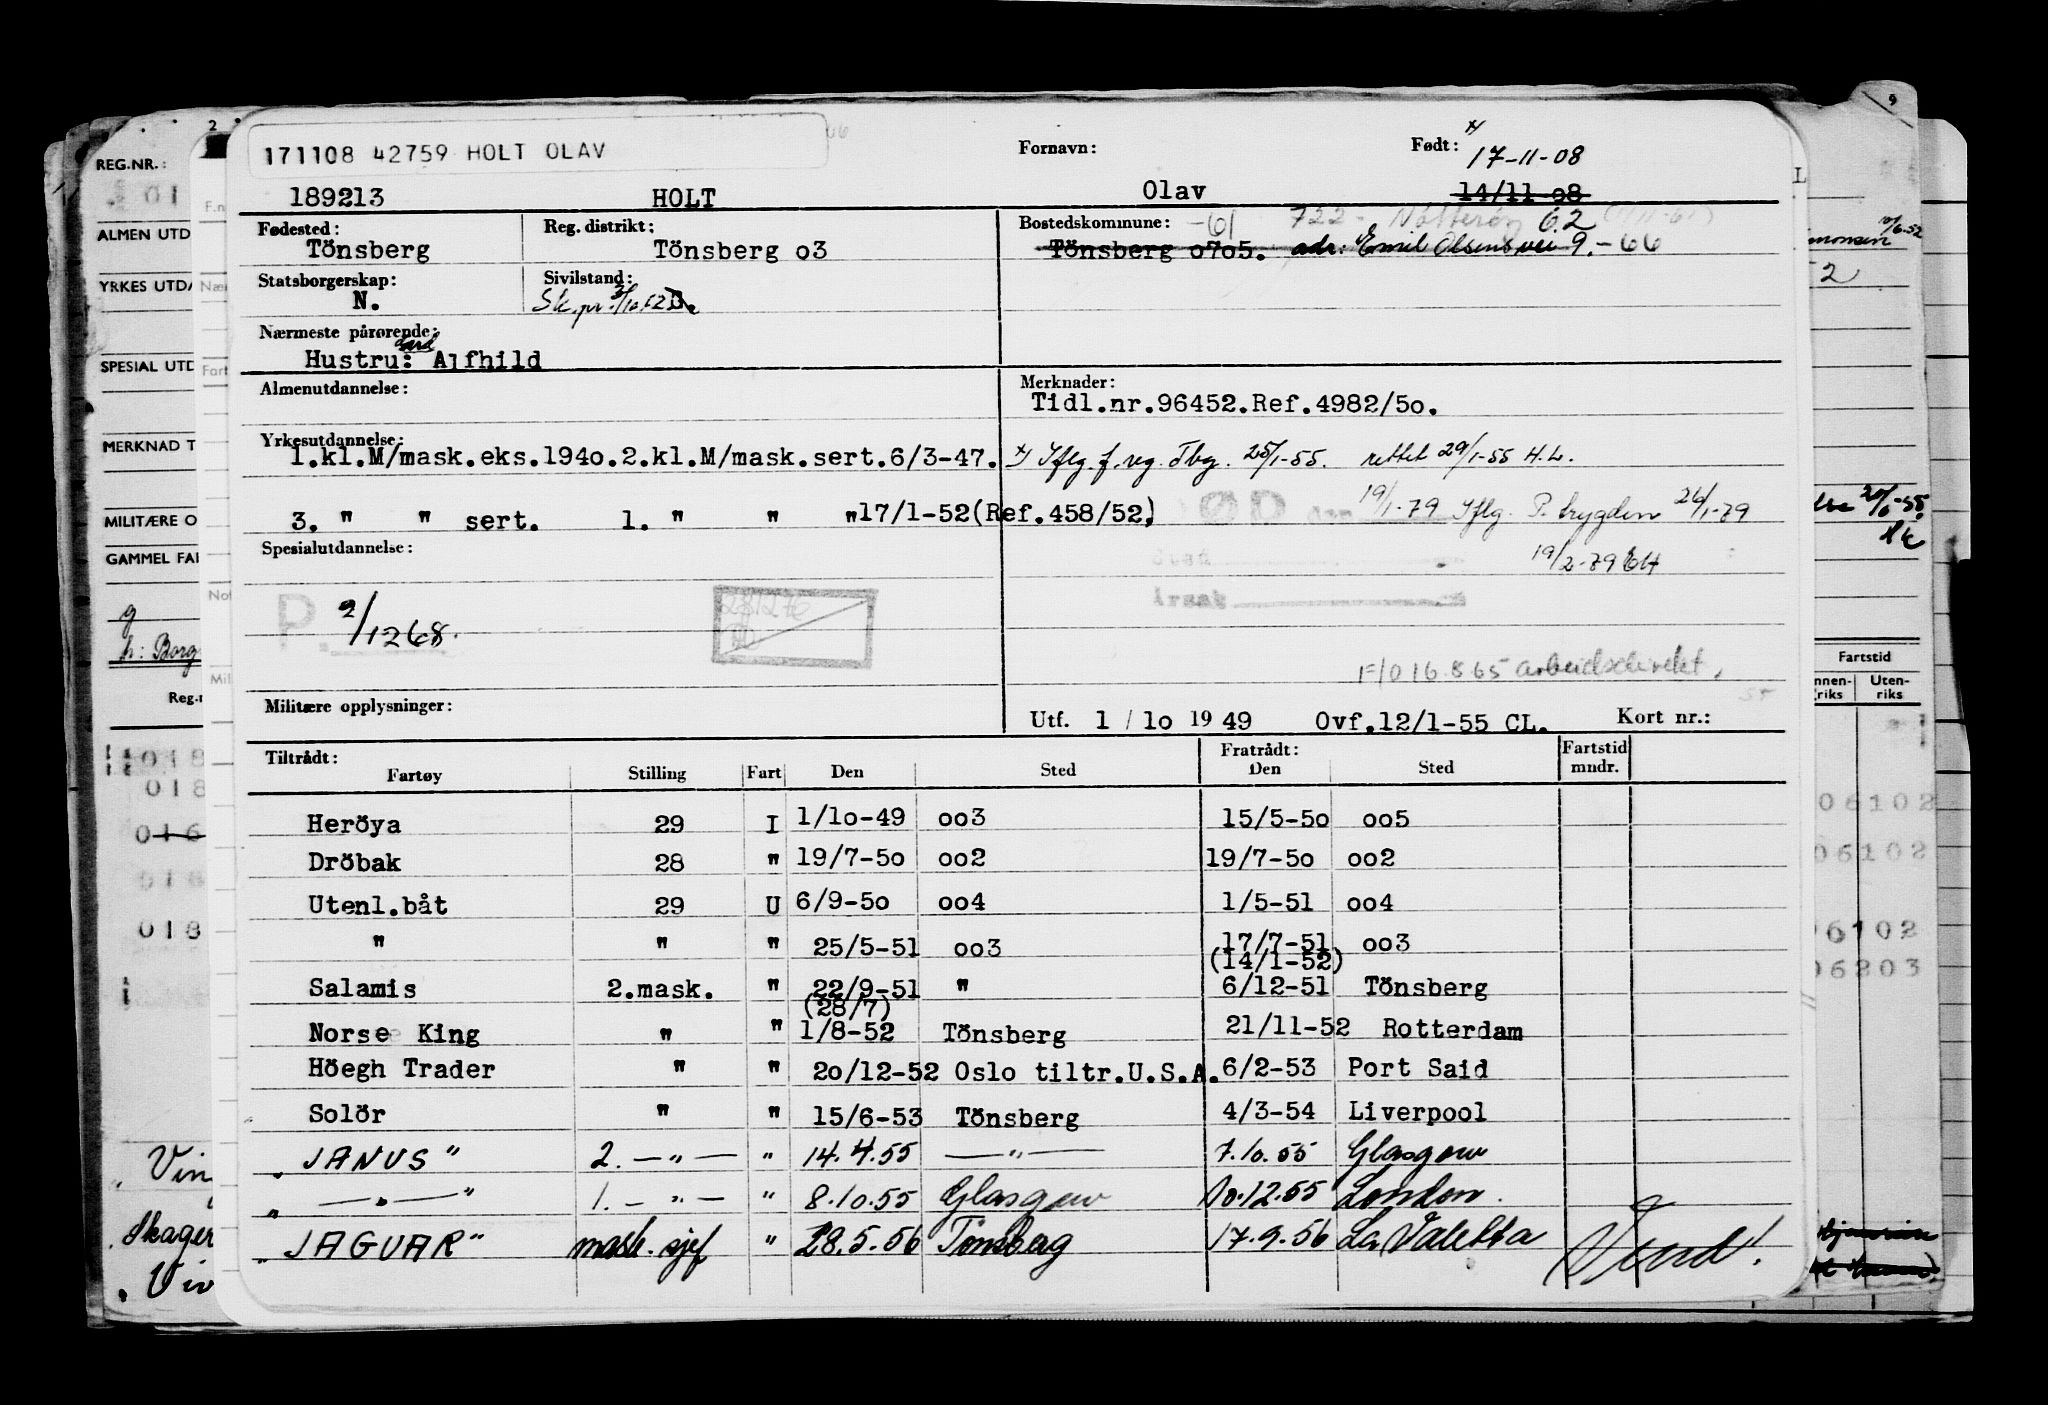 171108 42759 HOLT OLAV
Fornavn:
Født:
x)
17-11-08
189213 HOLT Olav 14/11-08
Fødested: Reg. distrikt: Bostedskommune: -61 722 - Nøtterøy 62 (1/11-61)
Tönsberg Tönsberg o3 Tönsberg o7o5. adr: Emil Olsens vei 9. -66
Statsborgerskap: Sivilstand:
N. Sk. pr. G.
Nærmeste pårørende:
Hustru: Alfhild
Almenutdannelse: Merknader:
Tidl.nr.96452.Ref.4982/5o.
Yrkesutdannelse:
1.kl.M/mask.eks.194o.2.kl.M/mask.sert.6/3-47. x) Iflg. f. reg. Tbg. 25/1-55. rettet 29/1-55 H.L.
3. " " sert. 1. " " "17/1-52(Ref.458/52) DØD den 19/1-79 Iflg. P. trygden 26/1-79
Spesialutdannelse: Sted 19/2-79 EH
Årsak
P. 2/1268.
281276
F/O 16.8.65 arbeidsdirektet.
Militære opplysninger: Utf. 1 / 1o 19 49 Ovf.12/1-55 CL. Kort nr.:
Tiltrådt: Fratrådt: Fartstid
Fartøy Stilling Fart Den Sted Den Sted mndr.
Heröya 29 I 1/1o-49 oo3 15/5-5o oo5
Dröbak 28 " 19/7-5o oo2 19/7-5o oo2
Utenl.båt 29 U 6/9-5o oo4 1/5-51 oo4
" " " 25/5-51 oo3 17/7-51 oo3
(14/1-52)
Salamis 2.mask. " 22/9-51 " 6/12-51 Tönsberg
(28/7)
Norse King " " 1/8-52 Tönsberg 21/11-52 Rotterdam
Höegh Trader " " 2o/12-52 Oslo tiltr.U.S.A. 6/2-53 Port Said
Solör " " 15/6-53 Tönsberg 4/3-54 Liverpool
"JANUS" 2. — " — " 14.4.55 — " — 7.10.55 Glasgow
" — " — " 1. — " — " 8.10.55 Glasgow 10.12.55 London.
"JAGUAR" mask. sjef " 28.5.56 Tönsberg 17.9.56 La Valetta
Vend!
2
REG.NR.:
01
ALMEN UTD
YRKES UTDA
SPESIAL UTD
MERKNAD T
MILITÆRE O
GAMMEL FAR
g
h: Borg
Reg.n
018
018
016
018
018
Vin
Skager
Viv
F.n
Nær
Fart
Not
Mil
9
L
10/6.52
2
20/6-55
Fartstid
nnen-
riks
Uten-
riks
06102
06102
06102
06203